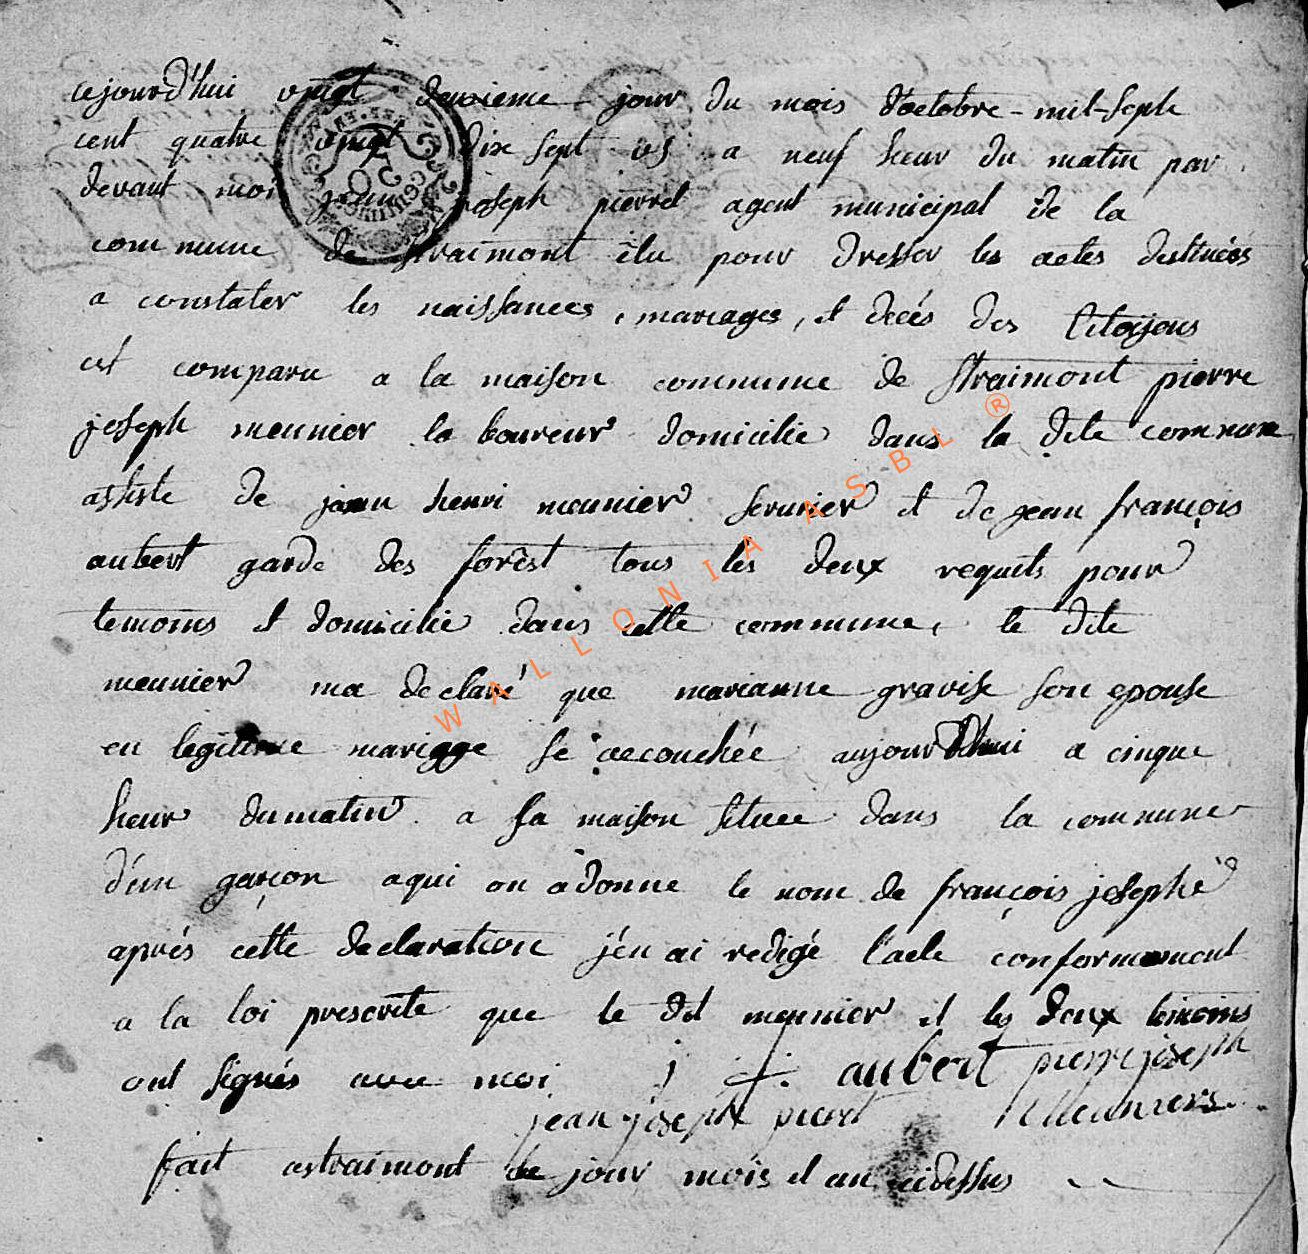 cejourd'hui vingt deuxieme jour du mois d'octobre - mil-sept
cent quatre vingt dix sept vs a neuf heur du matin par
devant moi jean joseph pierret agent municipal de la
commune de straimont élu pour dresser les actes destinées
a constater les naissances, mariages, et decés des Citoijens
est comparu a la maison commune de Straimont pierre
joseph meunier laboureur domicilie dans la dite commune
assiste de jean henri meunier serurier et de jean françois
aubert garde des forêst tous les deux requits pour
temoins et domicilie dans cette commune, le dite
meunier ma declaré que marianne gravise son epouse
en legitime mariage se accouchée aujourdhui a cinque
heur dumatin a sa maison située dans la commune
d'un garçon aqui on a donne le nom de françois josephe
aprés cette declaration j'en ai redigé l'acte conformement
a la loi prescrite que le dit meunier et les deux temoins
ont signés avec moi j + aubert pierre joseph
jean joseph piert Meuniers
fait astraimont le jour mois et an cidessus
WALLONIA ASBL ®